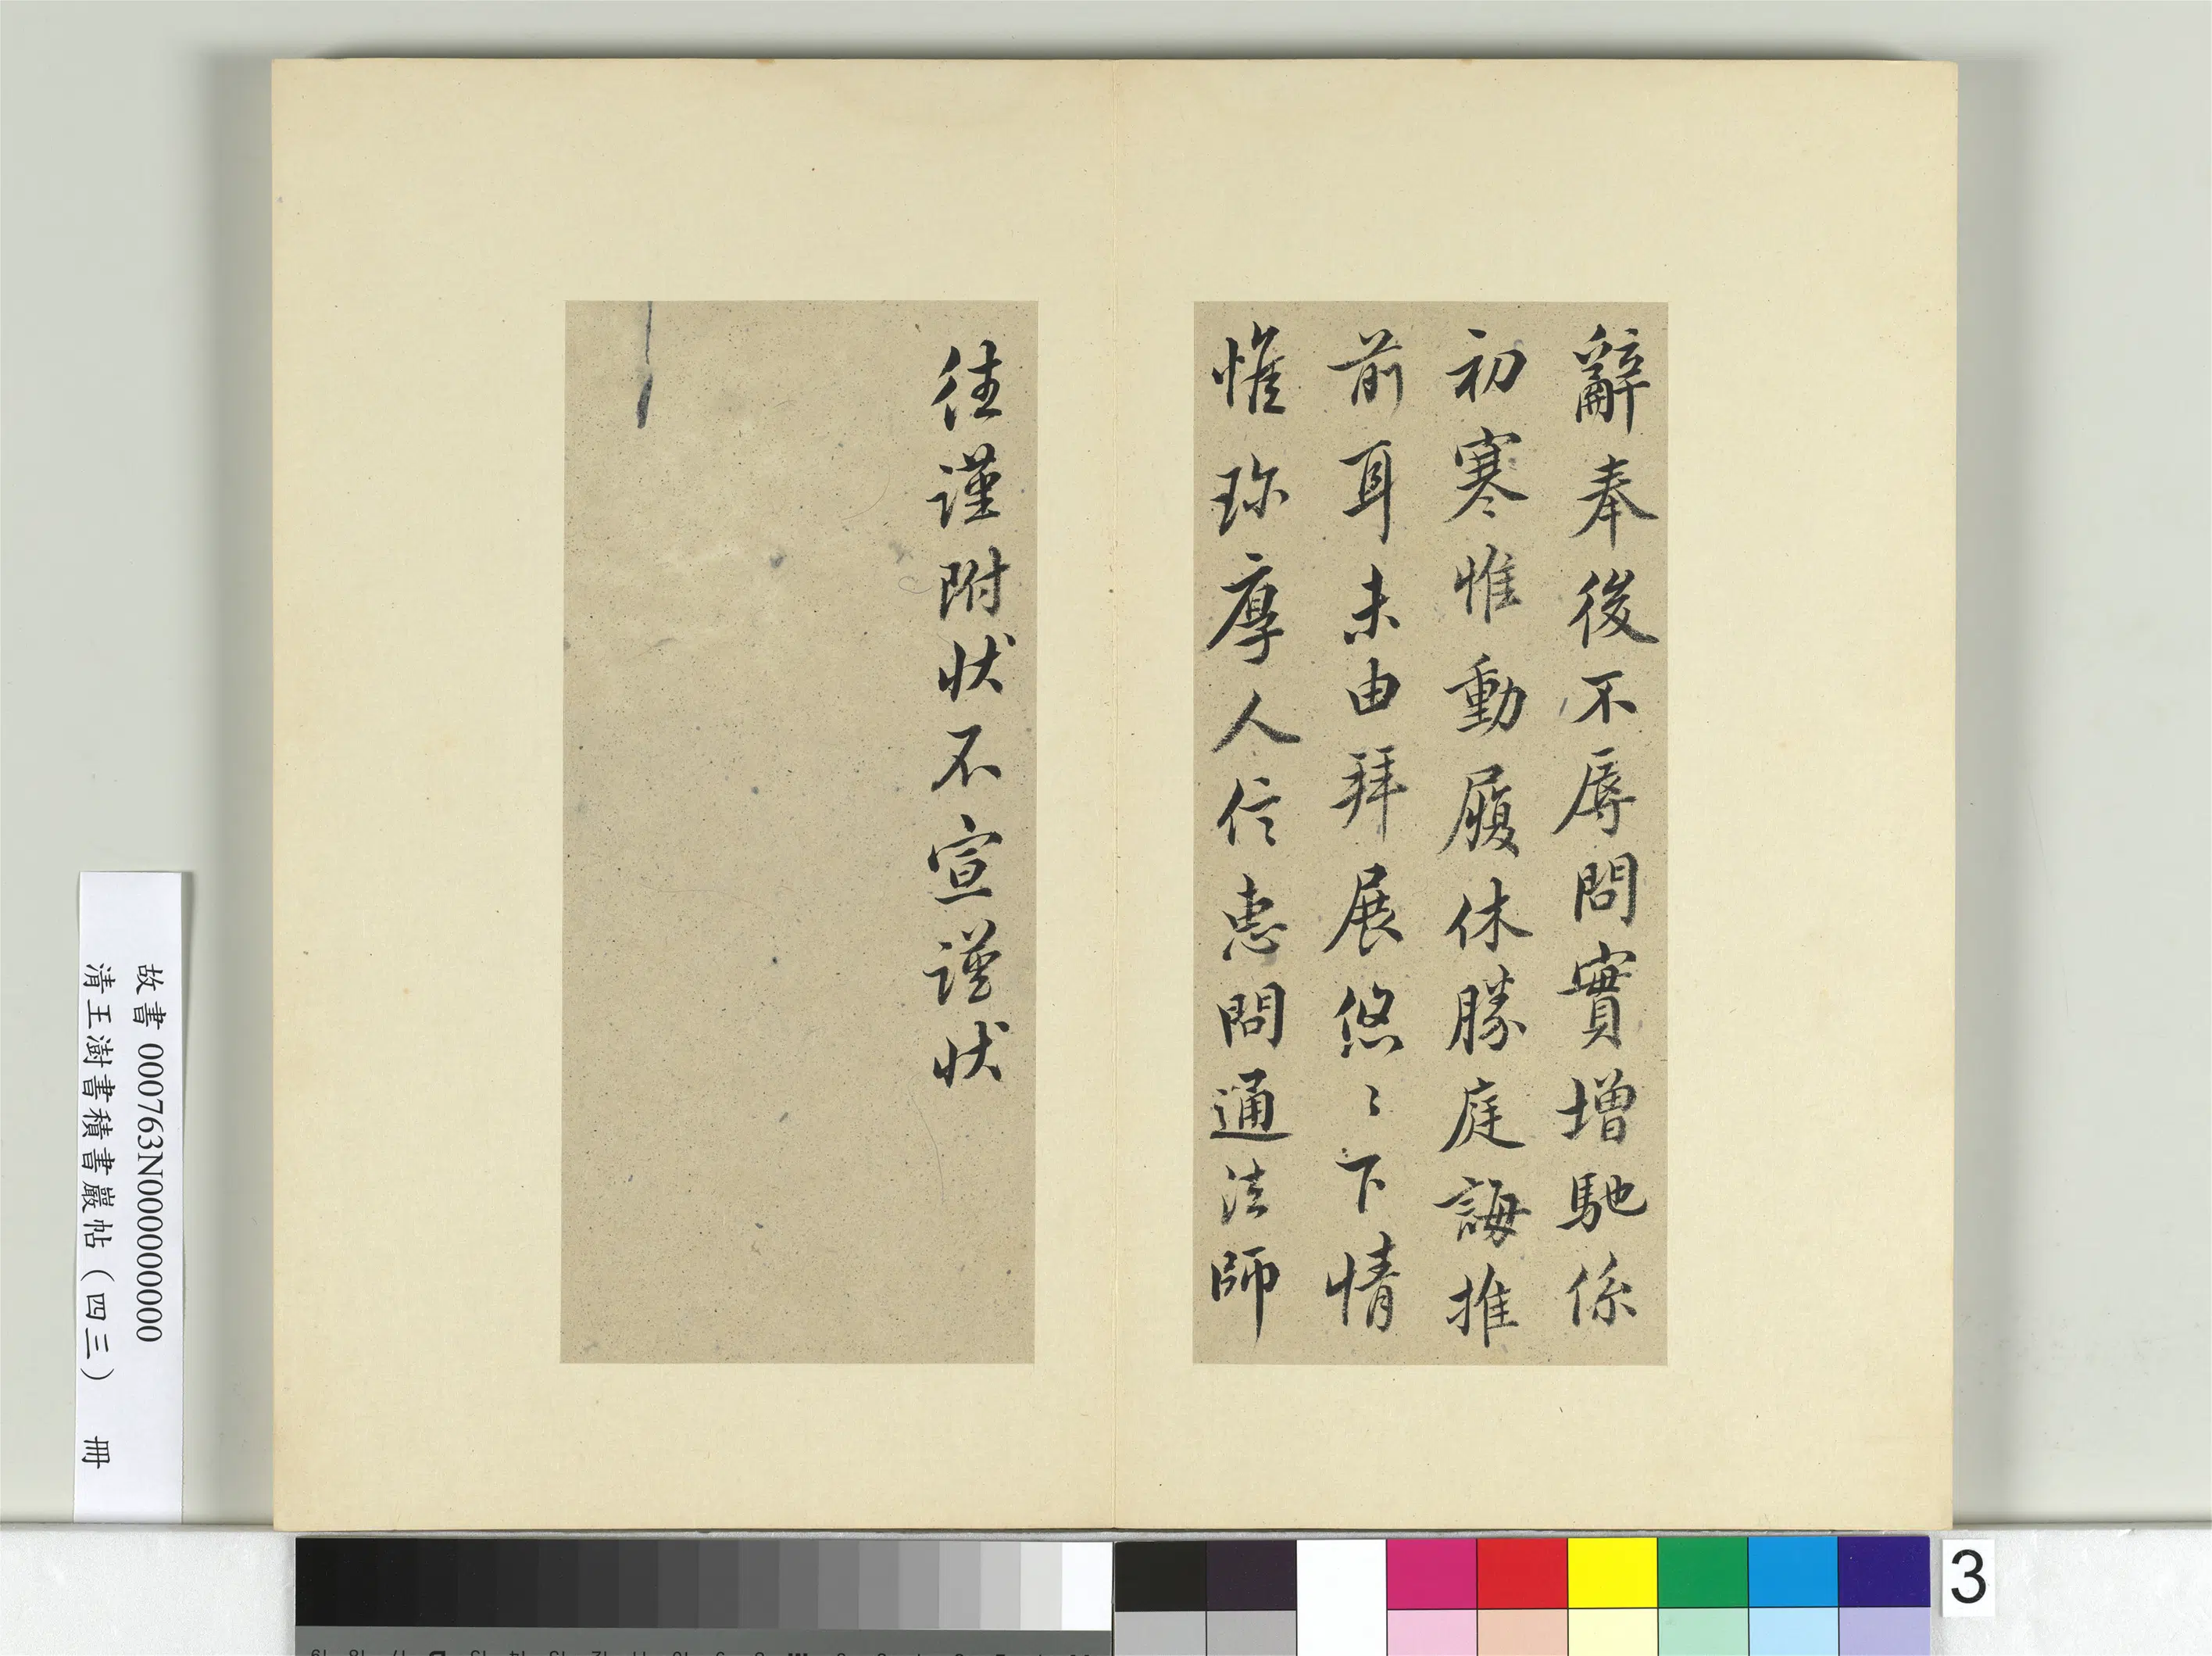 辭奉後不辱問實增馳係
初寒惟動履休勝庭誨推
前耳未由拜展悠〻下情
惟珎厚人信惠問通法師
往謹附状不宣謹状
故書 000763N000000000
清王澍書積書巖帖(四三) 冊
3